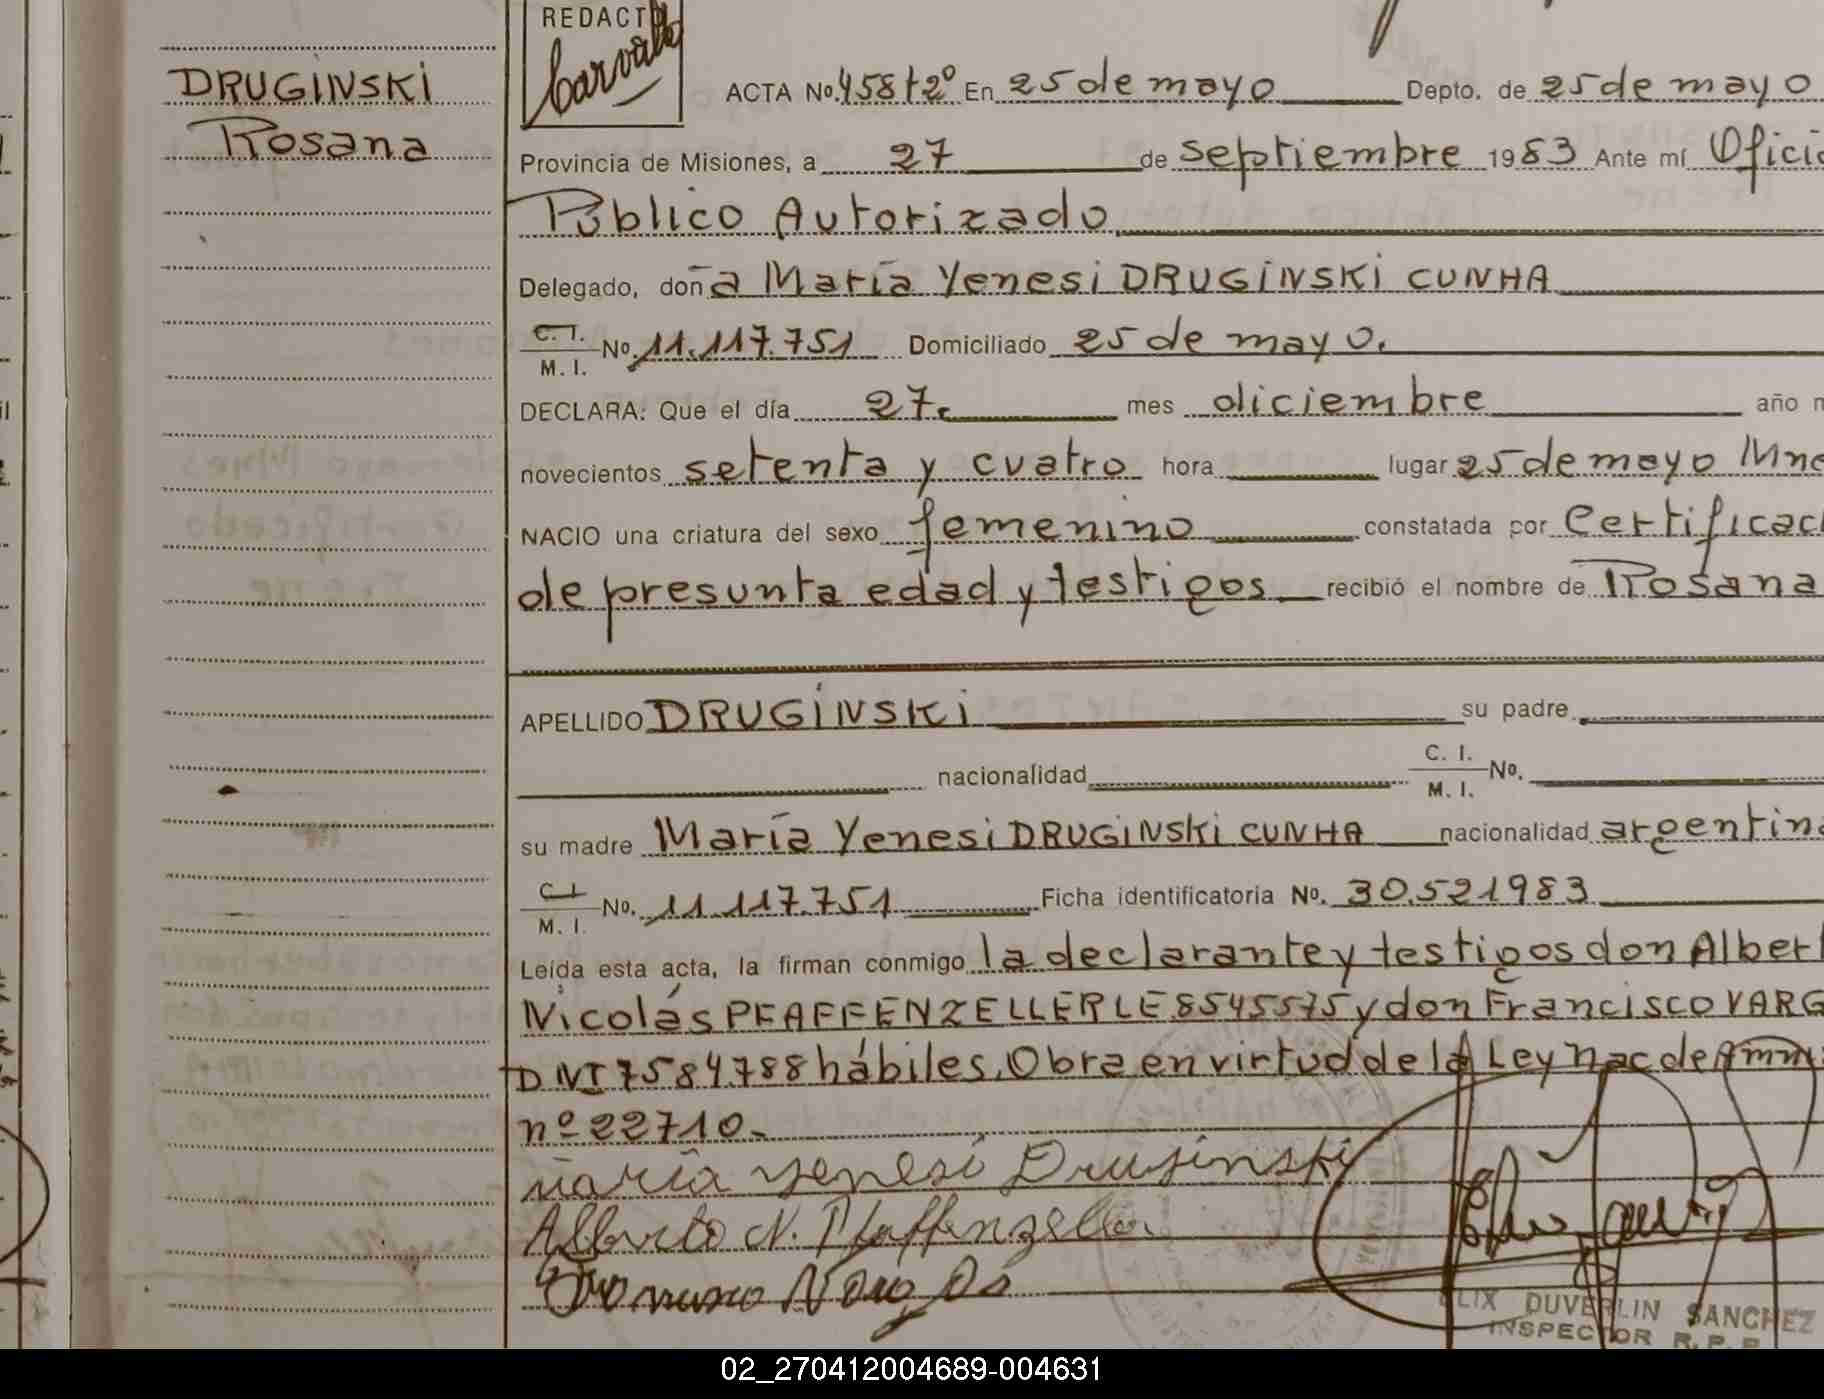 DRUGINSKI
Rosana
REDACT
Carvallo
ACTA No. 458 t 2º En 25 de mayo Depto. de 25 de mayo
Provincia de Misiones, a 27 de septiembre 1983 Ante mí Ofici
Público Autorizado
Delegado, doña María Yenesi DRUGINSKI CUNHA
C. I.
M. I. No. 11.117.751 Domiciliado 25 de mayo.
DECLARA: Que el día 27 mes diciembre año m
novecientos setenta y cuatro hora lugar 25 de mayo Mne
NACIO una criatura del sexo femenino constatada por Certificac
de presunta edad y testigos recibió el nombre de Rosana
APELLIDO DRUGINSKI su padre
nacionalidad C. I.
M. I. No.
su madre María Yenesi DRUGINSKI CUNHA nacionalidad argentin
C. I.
M. I. No. 11.117.751 Ficha identificatoria No. 30.521983
Leída esta acta, la firman conmigo la declarante y testigos don Albert
Nicolás PFAFFENZELLER LE 8545575 y don Francisco VARG
DNI 7584788 hábiles. Obra en virtud de la Ley nac de Amn
nº 22710.-
María Yenesi Druginski
Alberto N. Pfaffenzeller
LIX DUVERLIN SANCHEZ
INSPECTOR R. P. P
02_270412004689-004631